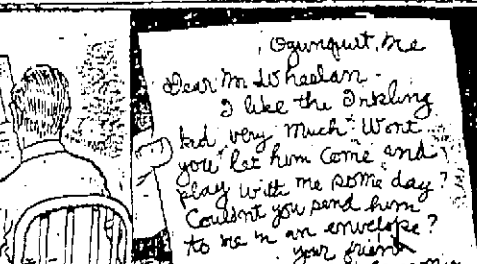 Ogunquit, Me
Dear Mr Wheelan -
I like the Inkling
kid very much. Wont
you let him come and
play with me some day?
Couldnt you send him
to me in an envelope?
your friend